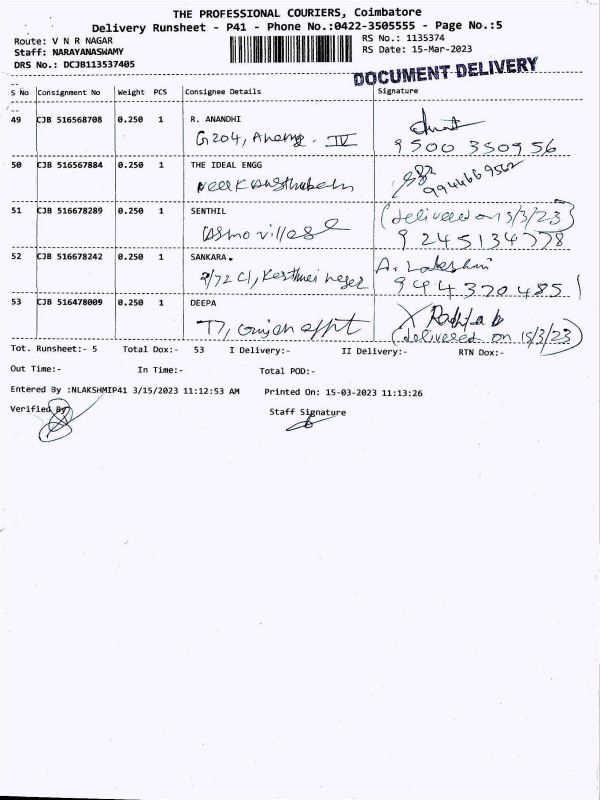 THE PROFESSIONAL COURIERS, Coimbatore
Delivery Runsheet - P41 - Phone No.:0422-3505555 - Page No.:5
Route: V N R NAGAR
RS No.: 1135374
Staff: NARAYANASWAMY
RS Date: 15-Mar-2023
DRS No.: DCJB113537405
DOCUMENT DELIVERY
S No Consignment No Weight PCS Consignee Details Signature
49 CJB 516568708 0.250 1 R. ANANDHI
G204, IV
9500 350956
50 CJB 516567884 0.250 1 THE IDEAL ENGG
9944669562
51 CJB 516678289 0.250 1 SENTHIL (delivered on 15/3/23)
9245134778
52 CJB 516678242 0.250 1 SANKARA. A. Lakshmi
9/72 C1,
53 CJB 516478009 0.250 1 DEEPA
T7, appt (delivered on 15/3/23)
Tot. Runsheet:- 5 Total Dox:- 53 I Delivery:- II Delivery:- RTN Dox:-
Out Time:- In Time:- Total POD:-
Entered By :NLAKSHMIP41 3/15/2023 11:12:53 AM Printed On: 15-03-2023 11:13:26
Verified By Staff Signature